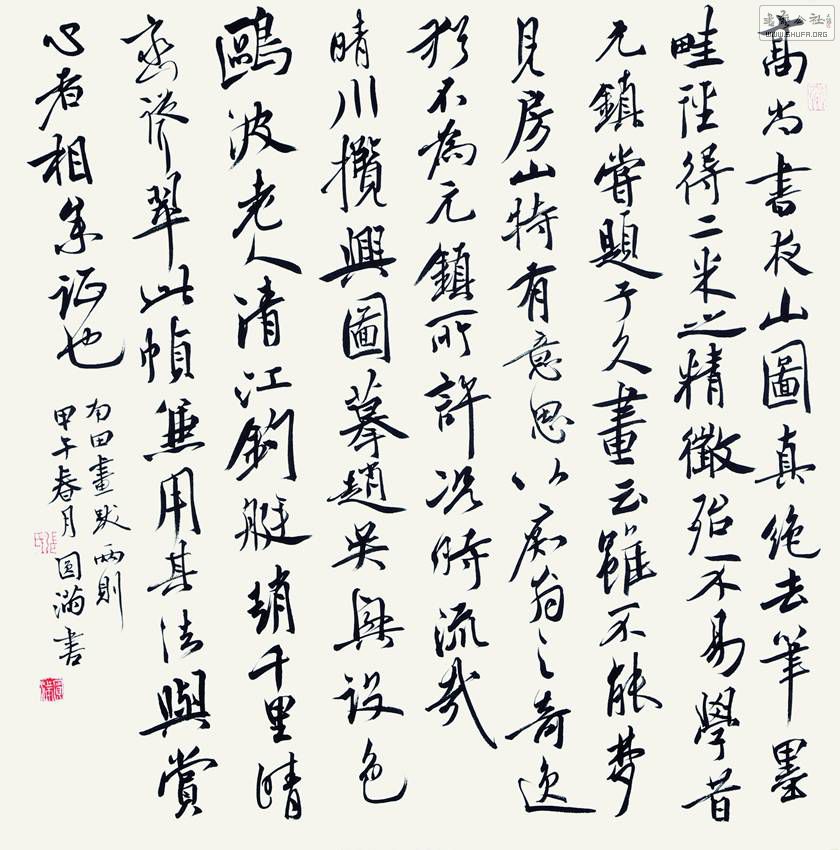 高尚書夜山圖真絶去筆墨
畦徑得二米之精微殆不易學昔
元鎮嘗題子久畫云雖不能夢
見房山特有意思以痴翁之奇逸
猶不為元鎮所許況時流哉
晴川攬興圖摹趙吳興設色
鷗波老人清江釣艇趙千里晴
巒滲翠此幀兼用其法與賞
心者相參証也
南田畫跋兩則
甲午春月圓滿書
書法公社
WWW.SHUFA.ORG